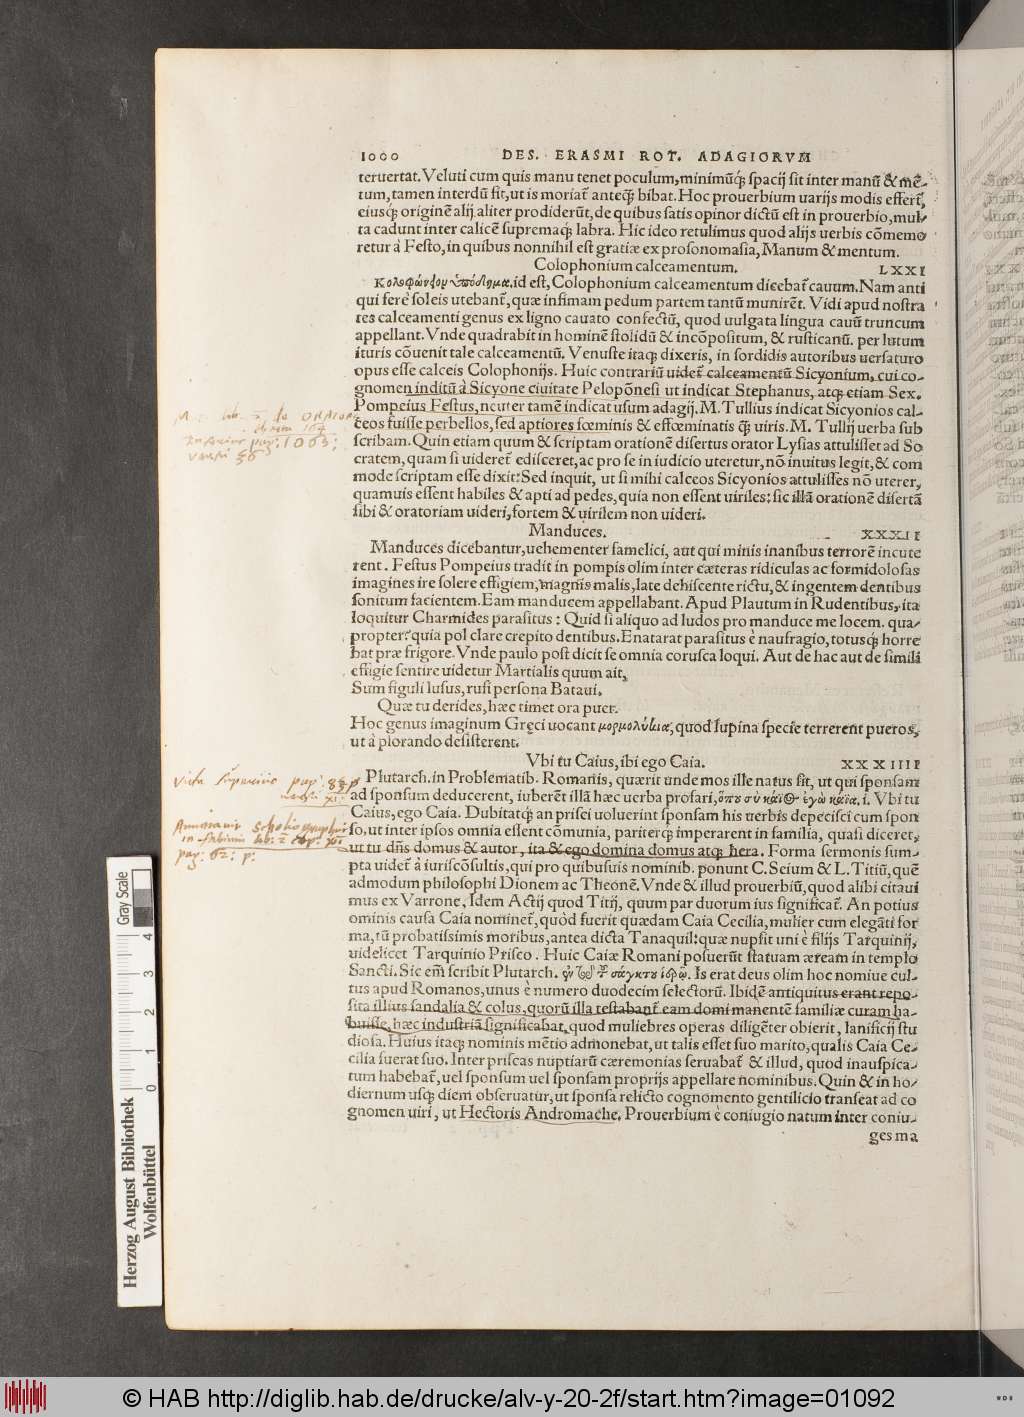 1000 DES. ERASMI ROT. ADAGIORVM
teruertat. Veluti cum quis manu tenet poculum, minimūq́; spacij sit inter manū & mē-
tum, tamen interdū fit, ut is moriat̃ anteq̃; bibat. Hoc prouerbium uarijs modis effert̃,
eiusq́; originē alij aliter prodiderūt, de quibus satis opinor dictū est in prouerbio, mul-
ta cadunt inter calicē supremaq́; labra. Hic ideo retulimus quod alijs uerbis cōmemo
retur à Festo, in quibus nonnihil est gratiæ ex prosonomasia, Manum & mentum.
Colophonium calceamentum. LXXI
Κολοφώνιον ὑπόδημα, id est, Colophonium calceamentum dicebat̃ cauum. Nam anti
qui ferè soleis utebant̃, quæ infimam pedum partem tantū munirēt. Vidi apud nostra
tes calceamenti genus ex ligno cauato confectū, quod uulgata lingua cauū truncum
appellant. Vnde quadrabit in hominē stolidū & incōpositum, & rusticanū. per lutum
ituris cōuenit tale calceamentū. Venuste itaq; dixeris, in sordidis autoribus uersaturo
opus esse calceis Colophonijs. Huic contrariū uidet̃ calceamentū Sicyonium, cui co-
gnomen inditū à Sicyone ciuitate Pelopōnesi ut indicat Stephanus, atq; etiam Sex.
Pompeius Festus, neuter tamē indicat usum adagij. M. Tullius indicat Sicyonios cal-
ceos fuisse perbellos, sed aptiores fœminis & effœminatis q̃; uiris. M. Tullij uerba sub
scribam. Quin etiam quum & scriptam orationē disertus orator Lysias attulisset ad So
cratem, quam si uideret̃ edisceret, ac pro se in iudicio uteretur, nō inuitus legit, & com
mode scriptam esse dixit: Sed inquit, ut si mihi calceos Sicyonios attulisses nō uterer,
quamuis essent habiles & apti ad pedes, quia non essent uiriles: sic illā orationē disertā
sibi & oratoriam uideri, fortem & uirilem non uideri.
Manduces. XXXII
Manduces dicebantur, uehementer famelici, aut qui minis inanibus terrorē incute
rent. Festus Pompeius tradit in pompis olim inter cæteras ridiculas ac formidolosas
imagines ire solere effigiem, magnis malis, late dehiscente rictu, & ingentem dentibus
sonitum facientem. Eam manducem appellabant. Apud Plautum in Rudentibus, ita
loquitur Charmides parasitus: Quid si aliquo ad ludos pro manduce me locem. qua-
propter? quia pol clare crepito dentibus. Enatarat parasitus è naufragio, totusq́; horre
bat præ frigore. Vnde paulo post dicit se omnia corusca loqui. Aut de hac aut de simili
effigie sentire uidetur Martialis quum ait,
Sum figuli lusus, rufi persona Bataui,
Quæ tu derides, hæc timet ora puer.
Hoc genus imaginum Gręci uocant μορμολύκεια, quod lupina specie terrerent pueros,
ut à plorando desisterent.
Vbi tu Caius, ibi ego Caia. XXXIIII
Plutarch. in Problematib. Romanis, quærit unde mos ille natus sit, ut qui sponsam
ad sponsum deducerent, iuberēt illā hæc uerba profari, ὅπου σὺ κάϊος ἐγὼ κάϊα, i. Vbi tu
Caius, ego Caia. Dubitatq́; an prisci uoluerint sponsam his uerbis depecisci cum spon
so, ut inter ipsos omnia essent cōmunia, pariterq́; imperarent in familia, quasi diceret,
ut tu dn̄s domus & autor, ita & ego domina domus atq; hera. Forma sermonis sum-
pta uidet̃ à iuriscōsultis, qui pro quibusuis nominib. ponunt C. Seium & L. Titiū, quē
admodum philosophi Dionem ac Theonē. Vnde & illud prouerbiū, quod alibi citaui
mus ex Varrone. Idem Actij quod Titij, quum par duorum ius significat̃. An potius
ominis causa Caia nominet̃, quòd fuerit quædam Caia Cecilia, mulier cum elegāti for
ma, tū probatissimis moribus, antea dicta Tanaquil: quæ nupsit uni è filijs Tarquinij,
uidelicet Tarquinio Prisco. Huic Caiæ Romani posuerūt statuam æream in templo
Sancti. Sic em̄ scribit Plutarch. ἐν τῷ τοῦ σάγκτου ἱερῷ. Is erat deus olim hoc nomine cul-
tus apud Romanos, unus è numero duodecim selectorū. Ibidē antiquitus erant repo-
sita illius sandalia & colus, quorū illa testabant̃ eam domi manentē familiæ curam ha-
buisse, hæc industriā significabat, quod muliebres operas diligēter obierit, lanificij stu
diosa. Huius itaq; nominis mētio admonebat, ut talis esset suo marito, qualis Caia Ce-
cilia fuerat suo. Inter priscas nuptiarū cæremonias seruabat̃ & illud, quod inauspica-
tum habebat̃, uel sponsum uel sponsam proprijs appellare nominibus. Quin & in ho-
diernum usq; diem obseruatur, ut sponsa relicto cognomento gentilicio transeat ad co
gnomen uiri, ut Hectoris Andromache. Prouerbium è coniugio natum inter coniu-
ges ma
Herzog August Bibliothek
Wolfenbüttel
Gray Scale
0 1 2 3 4
© HAB http://diglib.hab.de/drucke/alv-y-20-2f/start.htm?image=01092